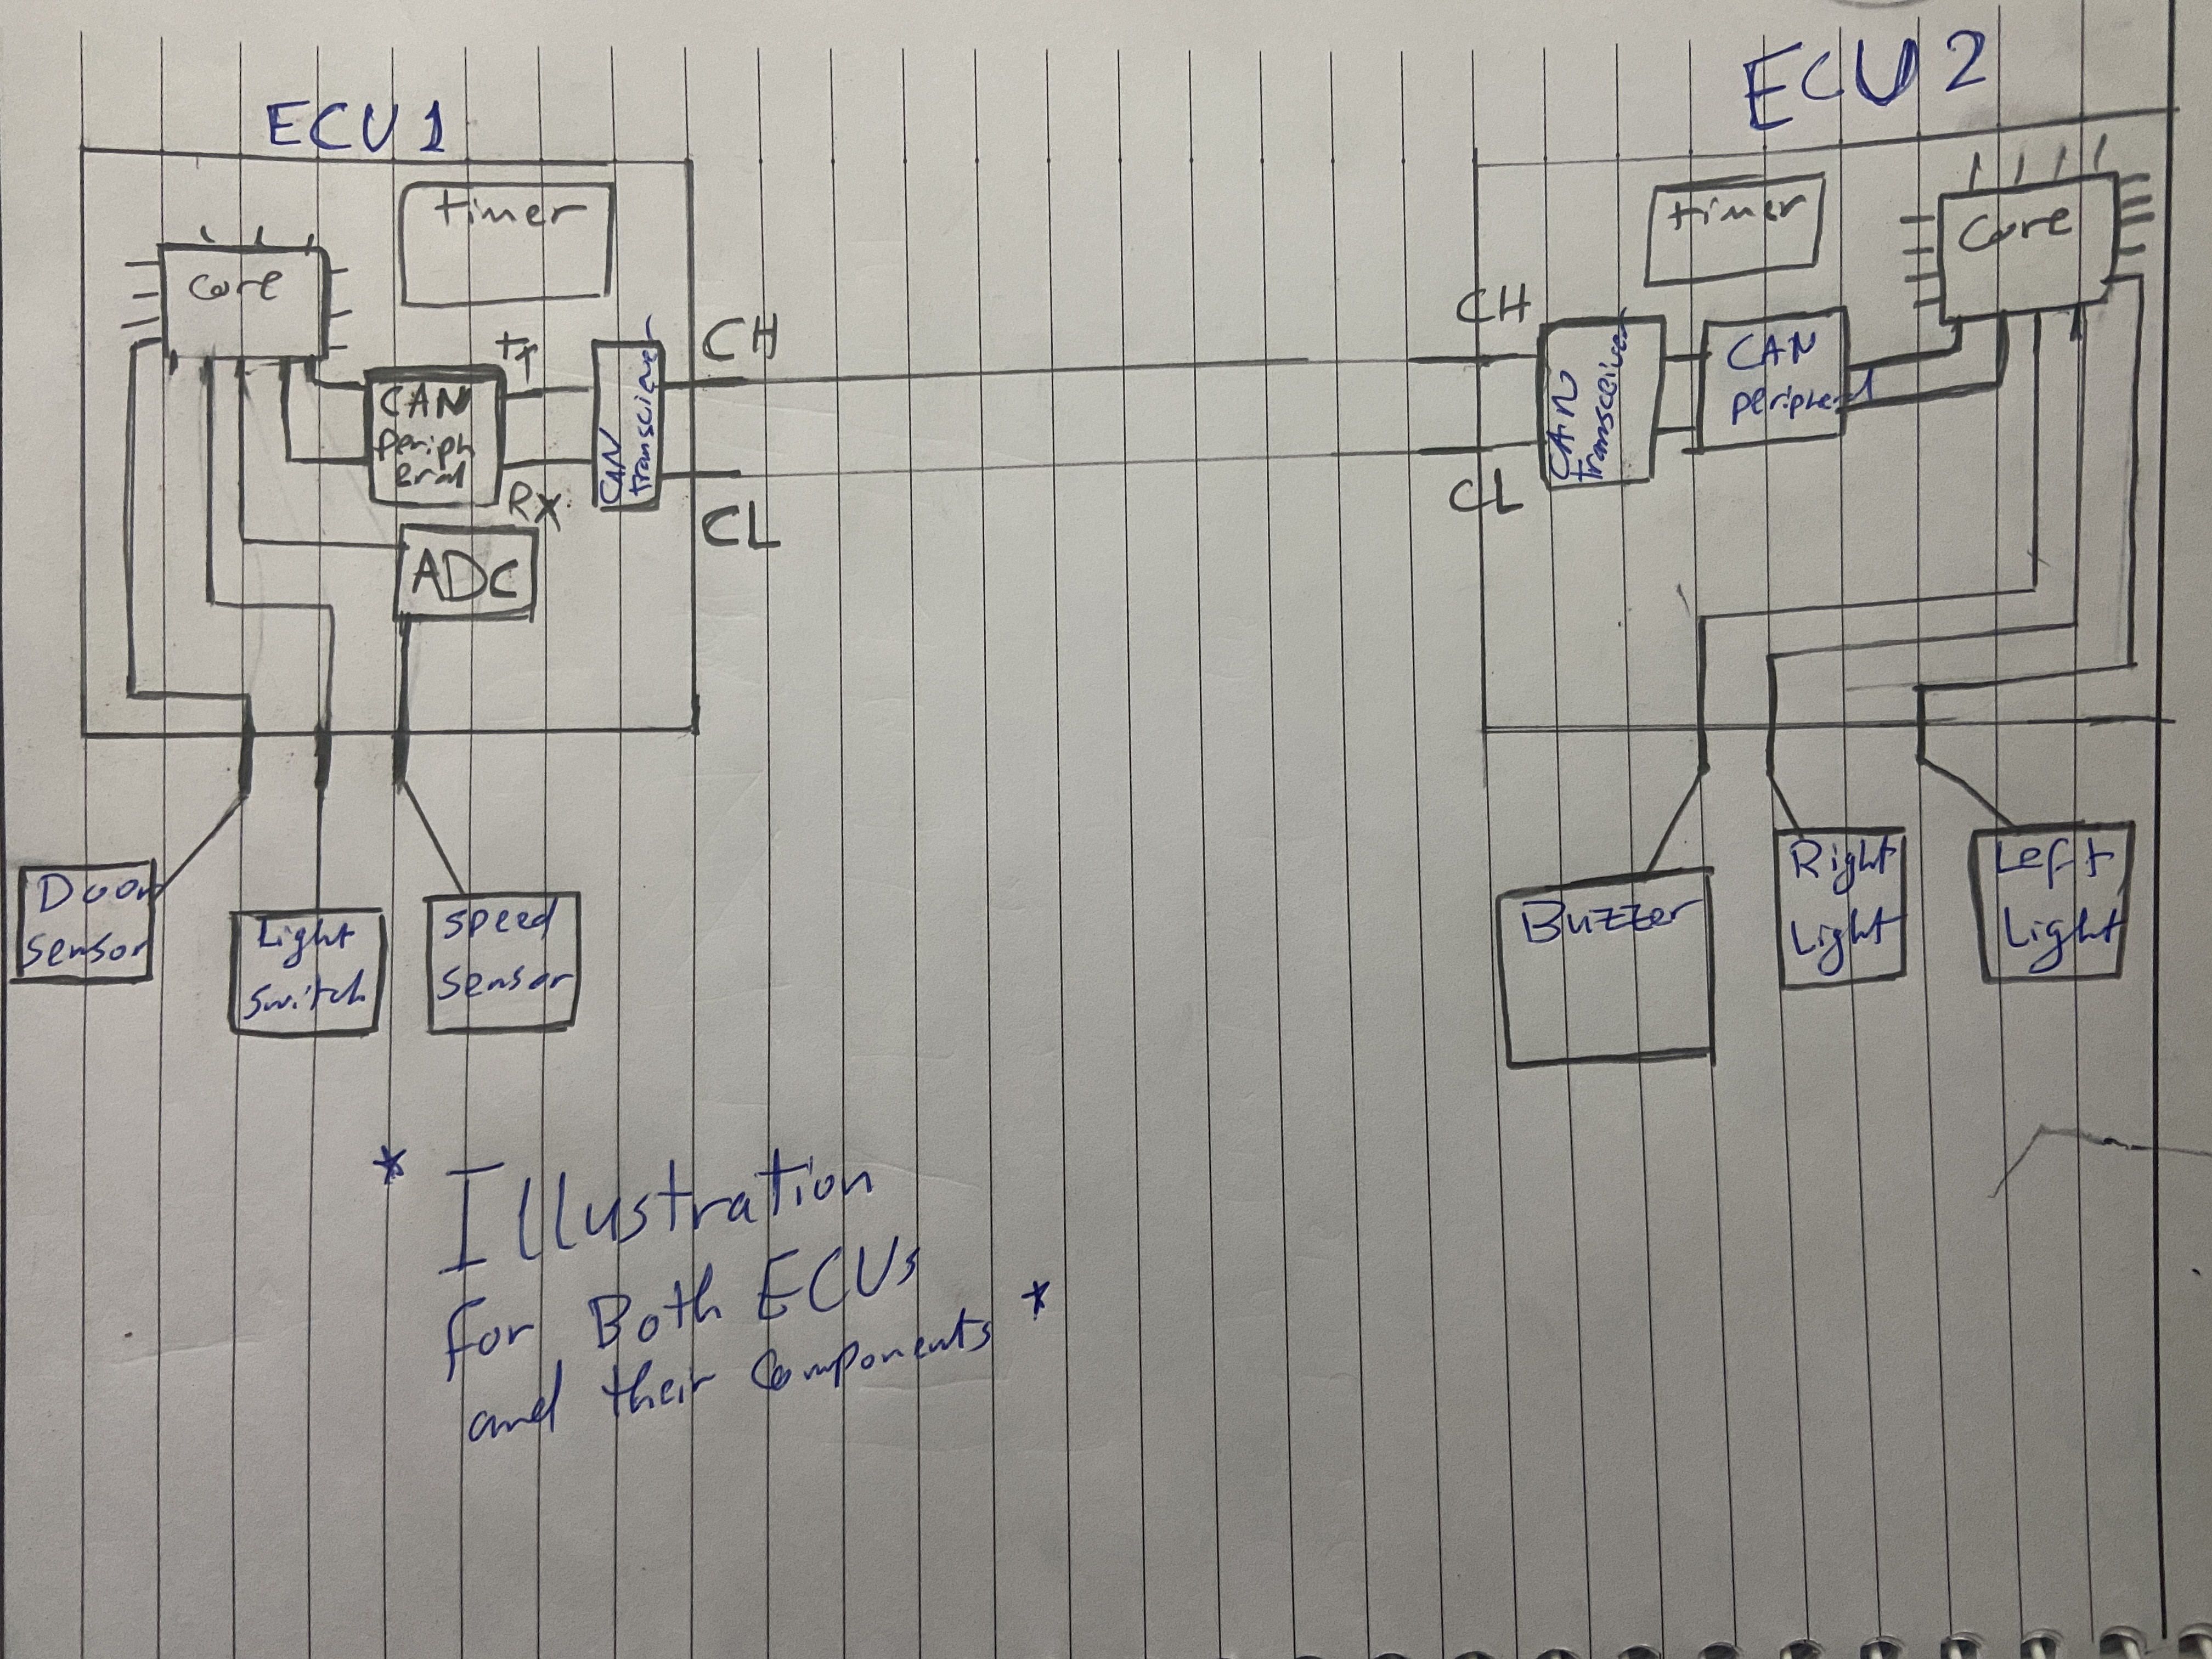 ECU 1
timer
Core
CAN
Periph
eral
Tx
RX
CAN
transciever
CH
CL
ADC
Door
sensor
Light
switch
speed
sensor
ECU 2
timer
Core
CH
CL
CAN
transceiver
CAN
peripheral
Buzzer
Right
Light
Left
Light
* Illustration
For Both ECUs
and their Components *